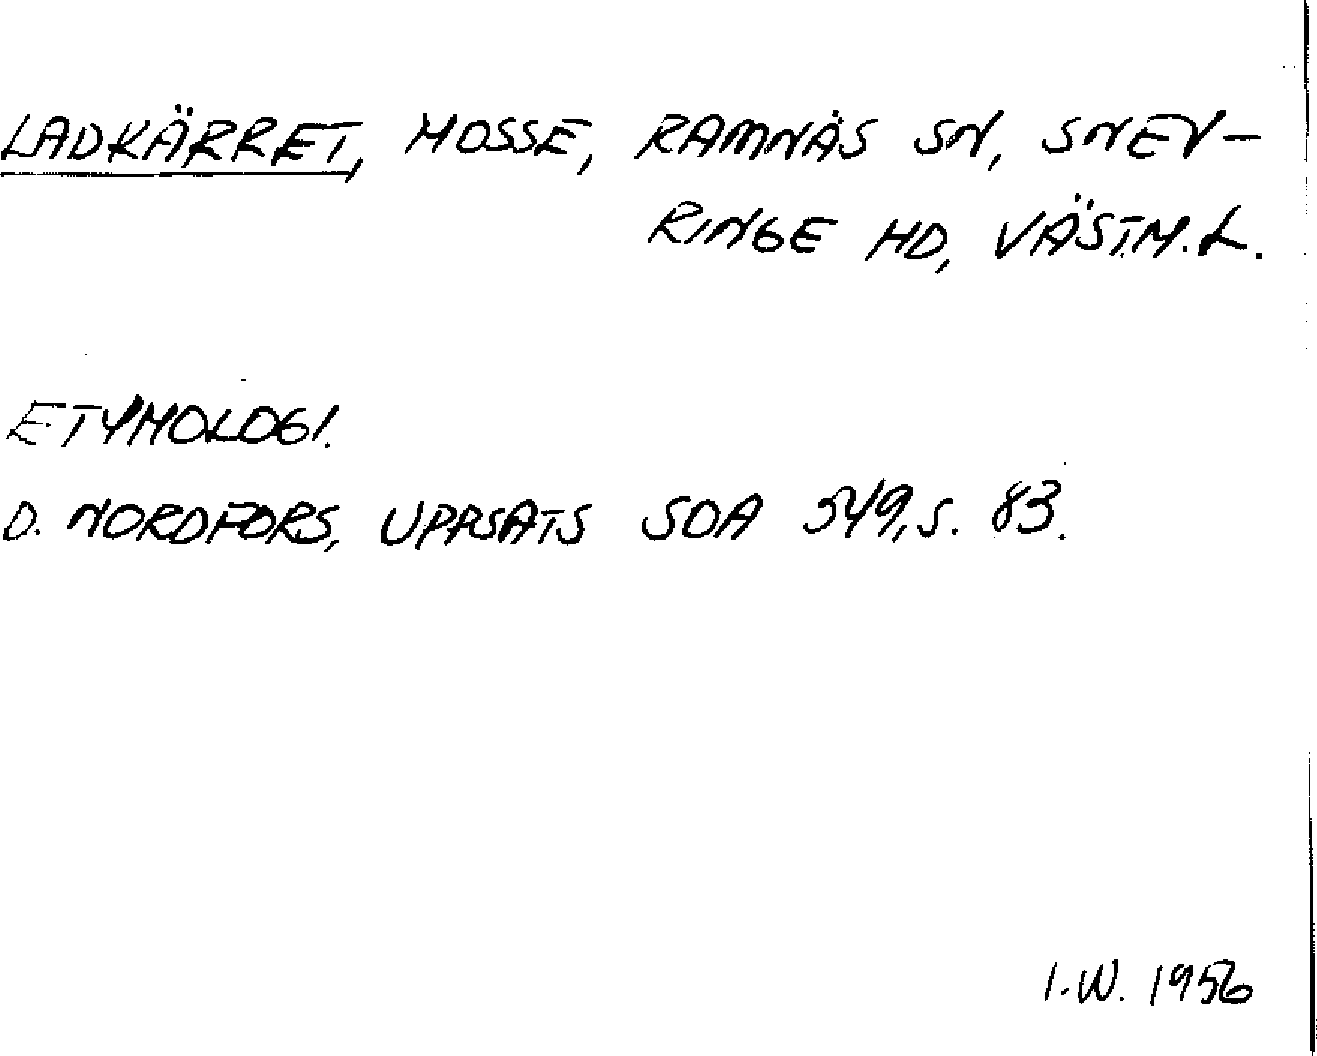 LADKÄRRET, MOSSE, RAMNÄS SN, SNEV-
RINGE HD, VÄSTM.L.
ETYMOLOGI.
D. NORDFORS, UPPSATS SOA 549, S. 83.
I.W. 1956